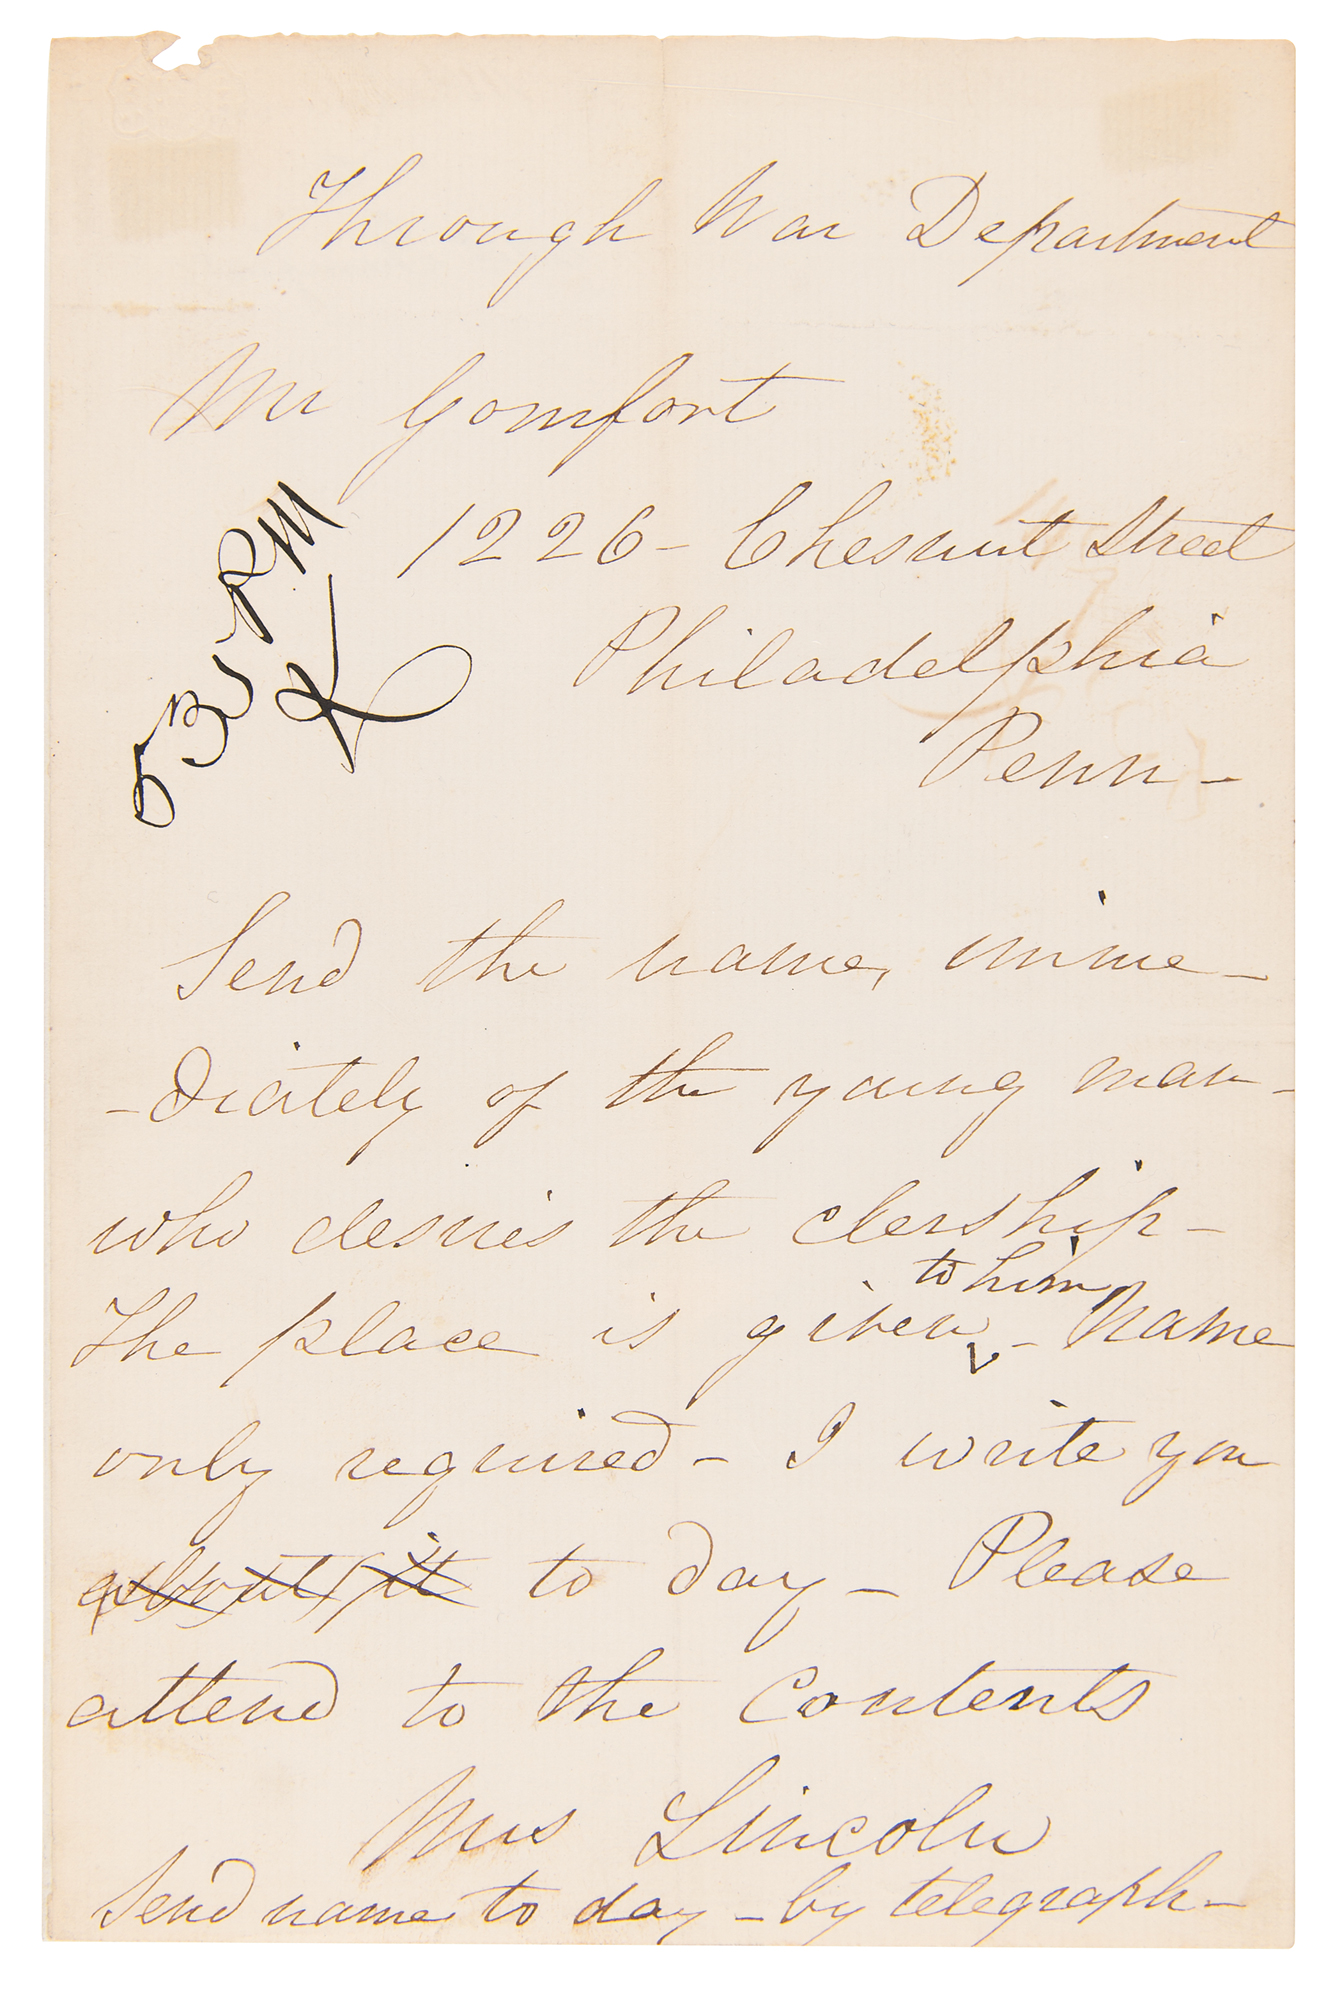 Through War Department
Mr Gomfort
1226 - Chesnut Street
Philadelphia
Penn -
PM
K
Send the name, imme -
- diately of the young man -
who desires the clership -
to him
The place is given - Name
only required - I write you
about it to day - Please
attend to the Contents
Mrs Lincoln
Send name to day - by telegraph -